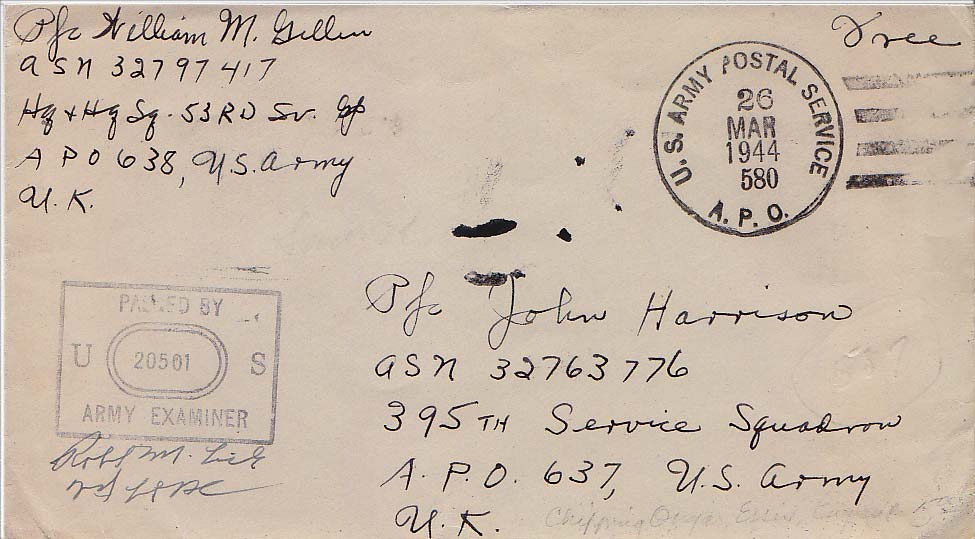 Pfc William M. Gillen
ASN 32797417
Hq + Hq Sq. 53RD Sv. Gp
A P O 638, U.S. Army
U.K.
Free
U.S. ARMY POSTAL SERVICE
26
MAR
1944
580
A. P. O.
Pfc John Harrison
ASN 32763776
395TH Service Squadron
A. P. O. 637, U.S. Army
U.K.
Chipping Ongar Essex
PASSED BY
U 20501 S
ARMY EXAMINER
Robt M.